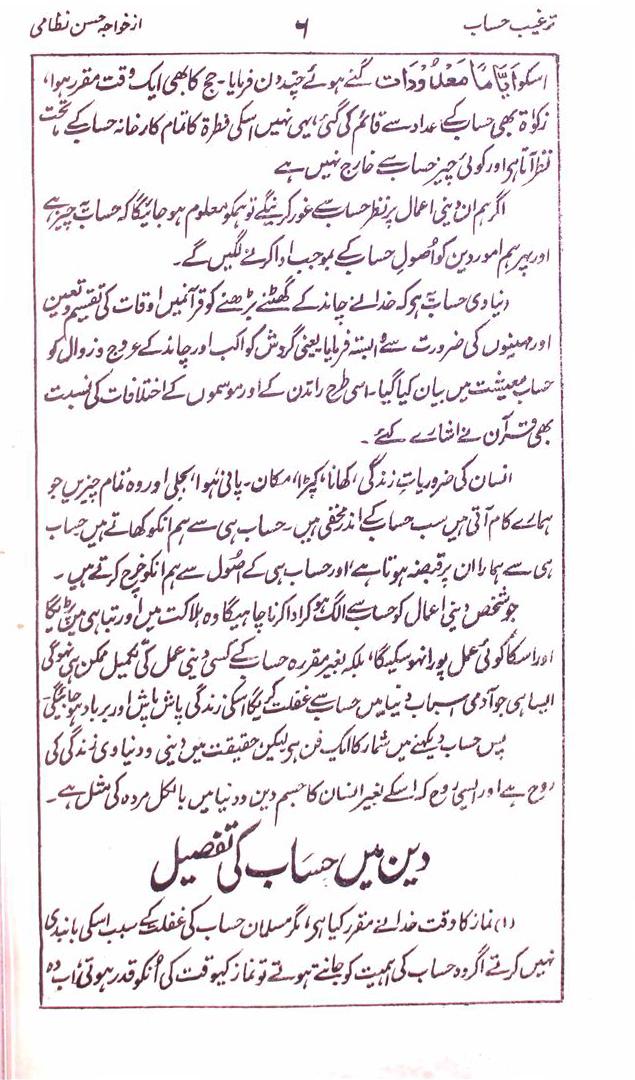 ترغیب حساب ۶ از خواجہ حسن نظامی
اسکو اَیَّامًا مَعْدُوْدَات گنے ہوئے چند دن فرمایا۔ حج کا بھی ایک وقت مقرر ہوا،
زکوٰۃ بھی حساب کے اعداد سے قائم کی گئی، یہی نہیں اسکی فطرۃ کا تمام کارخانہ حساب کے ماتحت
نظر آتا ہی اور کوئی چیز حساب سے خارج نہیں ہے
اگر ہم ان دینی اعمال پر نظر حساب سے غور کرینگے تو ہمکو معلوم ہو جائیگا کہ حساب کیا چیز ہے
اور پھر ہم امور دین کو اُصولِ حساب کے بموجب ادا کرنے لگیں گے۔
دنیاوی حساب یہ ہو کہ خدا نے چاند کے گھٹنے بڑھنے کو قرآنمیں اوقات کی تقسیم و تعین
اور مہینوں کی ضرورت سے وابستہ فرمایا یعنی گردش کواکب اور چاند کے عروج و زوال کو
حساب معیشت میں بیان کیا گیا۔ اسی طرح رات دن کے اور موسموں کے اختلافات کی نسبت
بھی قرآن نے اشارے کئے۔
انسان کی ضروریاتِ زندگی، کھانا، کپڑا، مکان۔ پانی ہوا، بجلی اور وہ تمام چیزیں جو
ہمارے کام آتی ہیں سب حساب کے اندر مخفی ہیں۔ حساب ہی سے ہم انکو کھاتے ہیں حساب
ہی سے ہمارا ان پر قبضہ ہوتا ہے اور حساب ہی کے اُصول سے ہم انکو خرچ کرتے ہیں۔
جو شخص دینی اعمال کو حساب سے الگ ہو کر ادا کرنا چاہیگا وہ ہلاکت میں اور تباہی میں پڑیگا
اور اسکا کوئی عمل پورا نہو سکیگا، بلکہ بغیر مقررہ حساب کے کسی دینی عمل کی تکمیل ممکن ہی نہوگی
ایسا ہی جو آدمی اسباب دنیا میں حساب سے غفلت کریگا اسکی زندگی پاش پاش اور برباد ہو جائیگی
پس حساب دیکھنے میں شمار کا ایک فن ہی لیکن حقیقت میں دینی و دنیاوی زندگی کی
روح ہے اور ایسی روح کہ اسکے بغیر انسان کا جسم دین و دنیا میں بالکل مردہ کی مثل ہے۔
دین میں حساب کی تفصیل
(۱) نماز کا وقت خدا نے مقرر کیا ہی، مگر مسلمان حساب کی غفلت کے سبب اسکی پابندی
نہیں کرتے اگر وہ حساب کی اہمیت کو جانتے ہوتے تو نماز کیوقت کی اُنکو قدر ہوتی، اب وہ